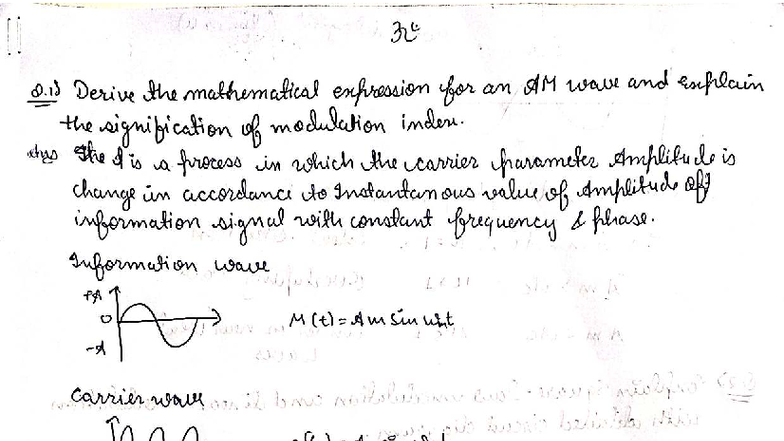 Q.1) Derive the mathematical expression for an AM wave and explain
the signification of modulation index.
Ans It is a process in which the carrier parameter Amplitude is
change in accordance to Instantanous value of Amplitude of
information signal with constant frequency & phase.
Information wave
+A
0
-A
M(t) = Am Sin ωmt
Carrier wave